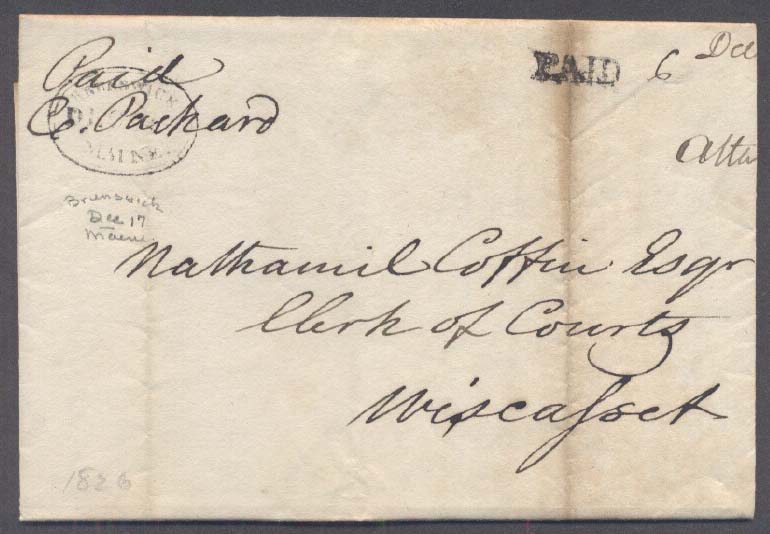 Paid
C. Packard
BRUNSWICK
MAINE
Brunswick
Dec 17
Maine
PAID 6
Dec
Nathaniel Coffin Esqr
Clerk of Courts
Wiscaſset
1826